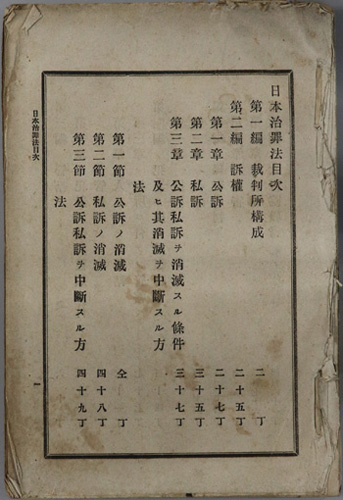 日本治罪法目次
第一編　裁判所構成　二　丁
第二編　訴權　二十五丁
第一章　公訴　二十七丁
第二章　私訴　三十五丁
第三章　公訴私訴ヲ消滅スル條件　三十七丁
及ヒ其消滅ヲ中斷スル方
法
第一節　公訴ノ消滅　仝　丁
第二節　私訴ノ消滅　四十八丁
第三節　公訴私訴ヲ中斷スル方　四十九丁
法
日本治罪法目次
一